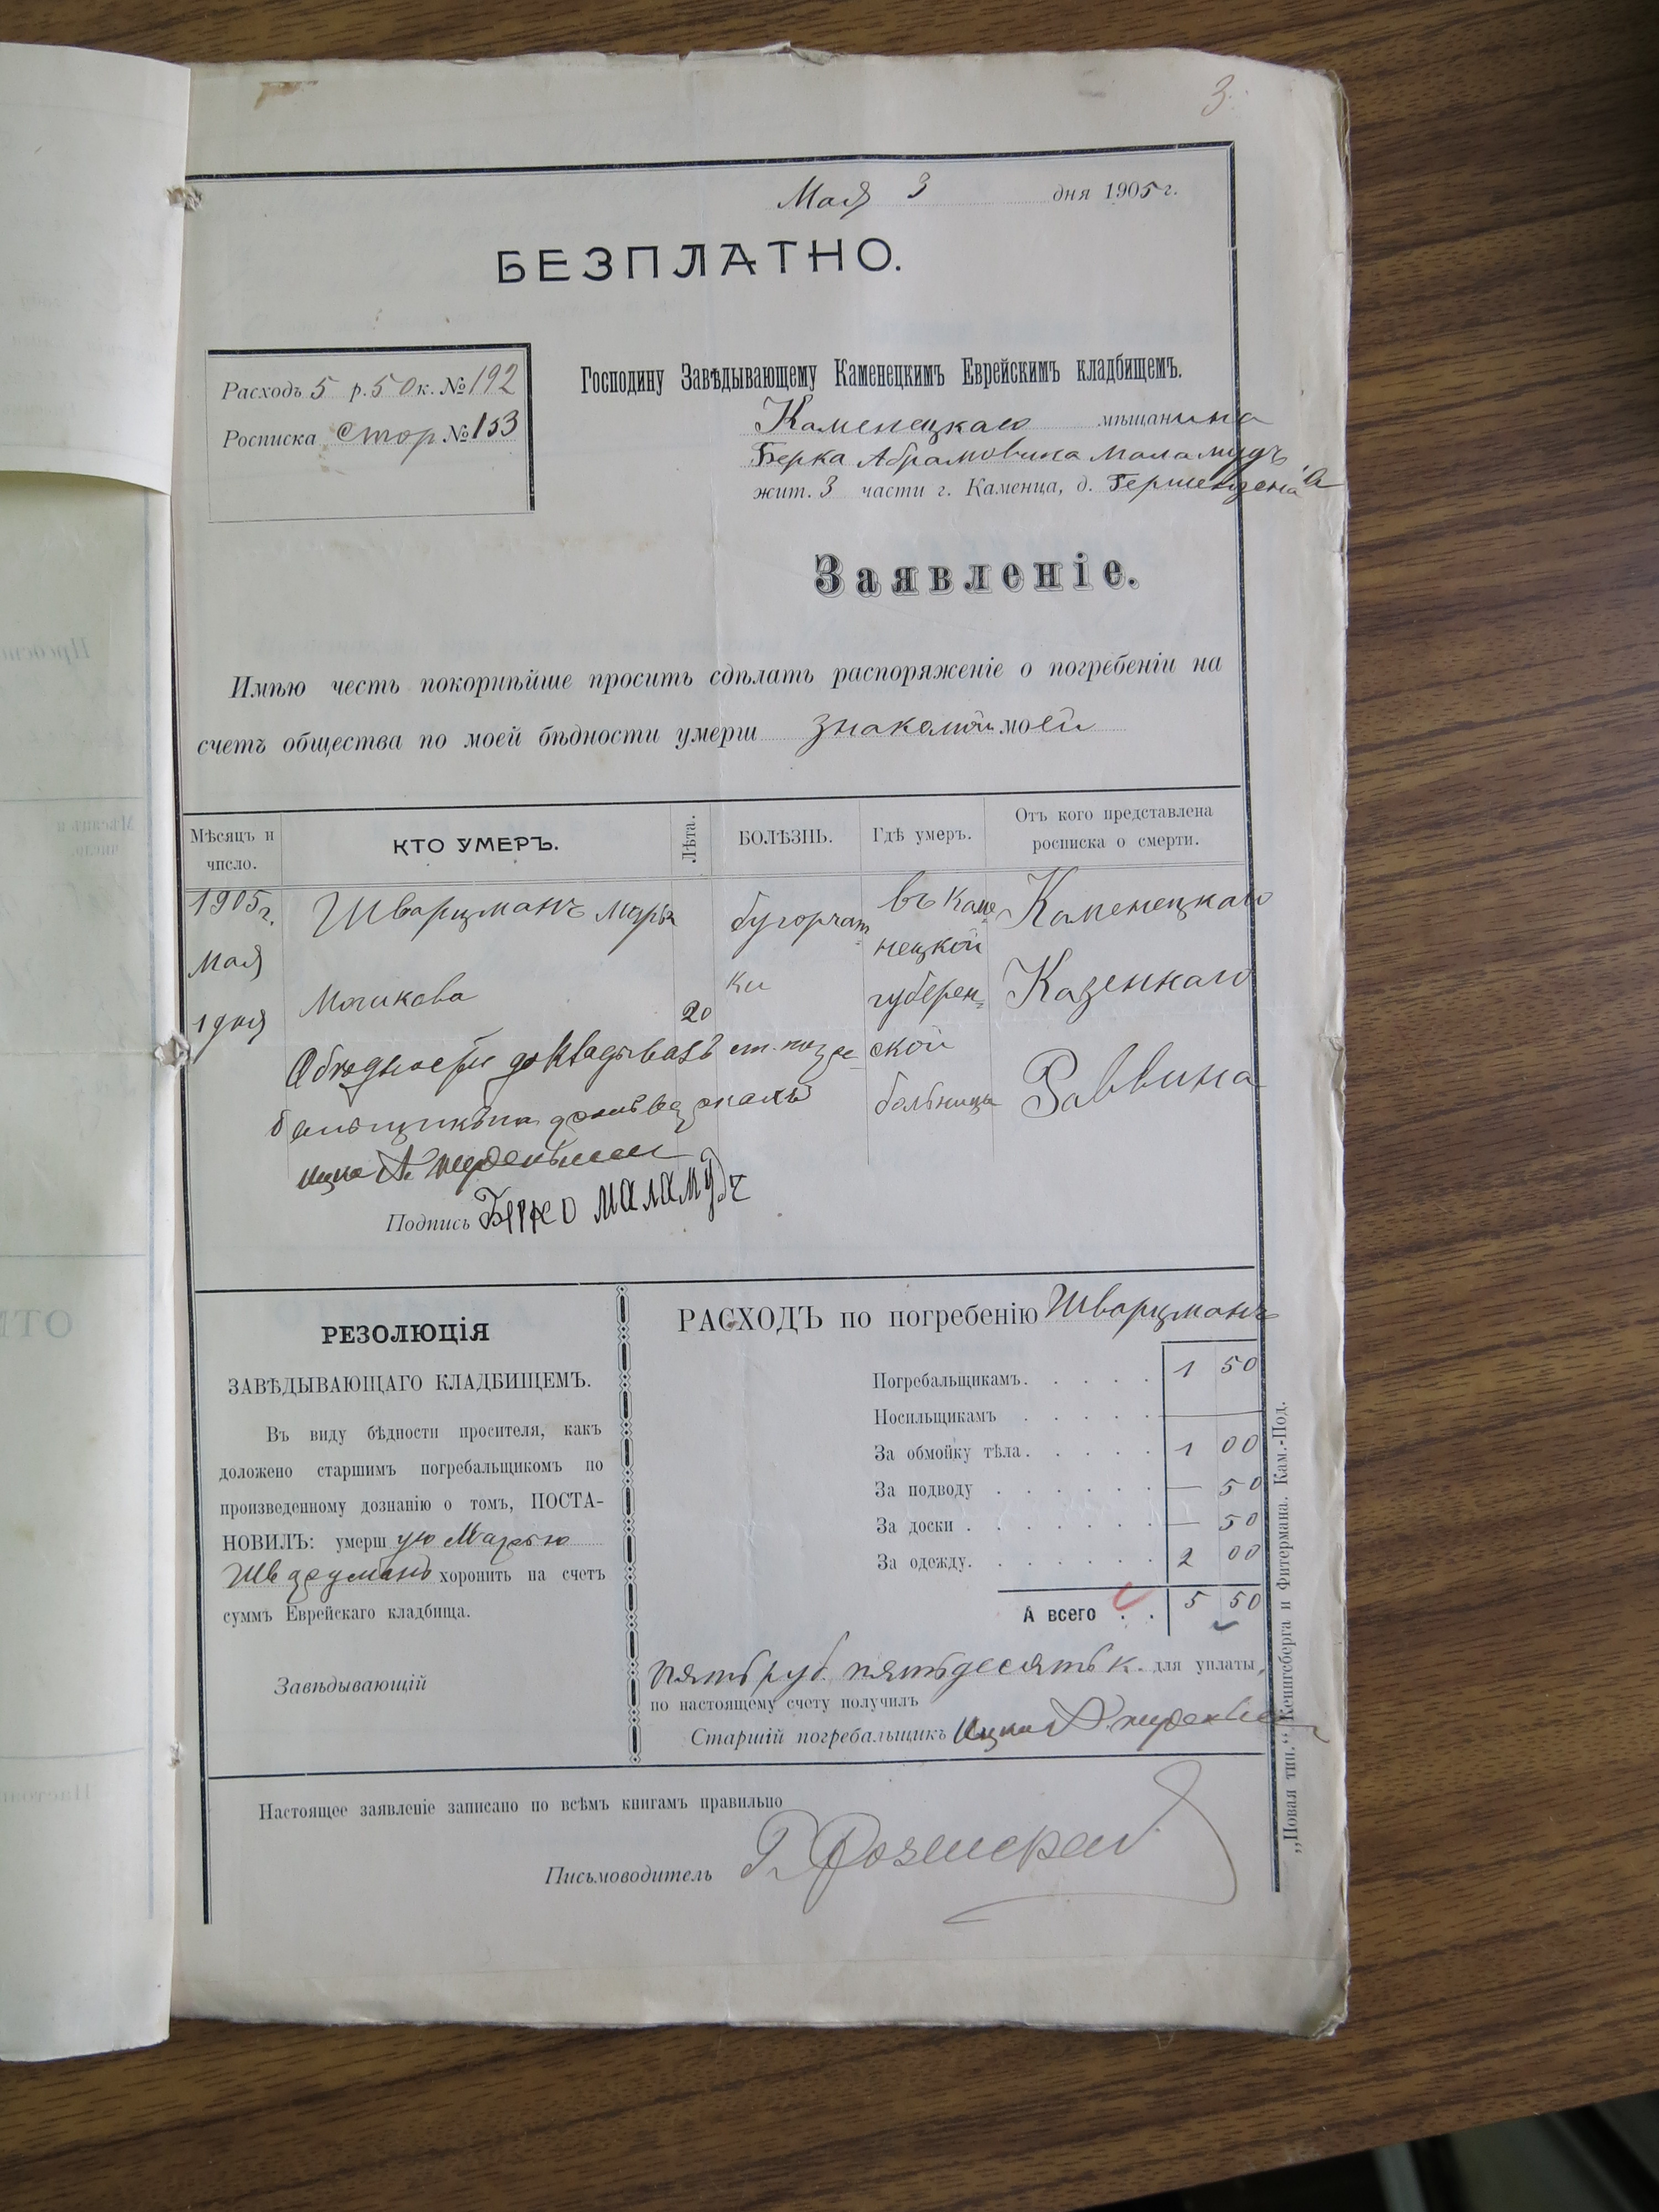 3.
Мая 3 дня 1905 г.
БЕЗПЛАТНО.
Расходъ 5 р. 50 к. № 192
Росписка Стор № 153
Господину Завѣдывающему Каменецкимъ Еврейскимъ кладбищемъ.
Каменецкаго мѣщанина
Берка Абрамовича Маламудъ
жит. 3 части г. Каменца, д.
Заявленіе.
Имѣю честь покорнѣйше просить сдѣлать распоряженіе о погребеніи на
счетъ общества по моей бѣдности умерш знакомой моей
Мѣсяцъ и число.
КТО УМЕРЪ.
Лѣта.
БОЛѢЗНЬ.
Гдѣ умеръ.
Отъ кого представлена росписка о смерти.
1905 г.
Мая
1 дня
Шварцманъ
20
бугорчат
ки
въ Каме
нецкой
губерн
ской
больницы
Каменецкаго
Казеннаго
Раввина
Подпись Берко Маламудъ
РЕЗОЛЮЦІЯ
ЗАВѢДЫВАЮЩАГО КЛАДБИЩЕМЪ.
Въ виду бѣдности просителя, какъ
доложено старшимъ погребальщикомъ по
произведенному дознанію о томъ, ПОСТА-
НОВИЛЪ: умерш ую
Шварцманъ хоронить на счетъ
суммъ Еврейскаго кладбища.
Завѣдывающій
РАСХОДЪ по погребенію Шварцманъ
Погребальщикамъ. . . . . 1 50
Носильщикамъ . . . . . —
За обмойку тѣла. . . . . 1 00
За подводу . . . . . . — 50
За доски . . . . . . . — 50
За одежду. . . . . . . 2 00
А всего . . 5 50
пять руб. пятьдесять к. для уплаты,
по настоящему счету получилъ
Старшій погребальщикъ
Настоящее заявленіе записано по всѣмъ книгамъ правильно
Письмоводитель
„Новая тип.“ Кенигсберга и Фитермана. Кам.-Под.